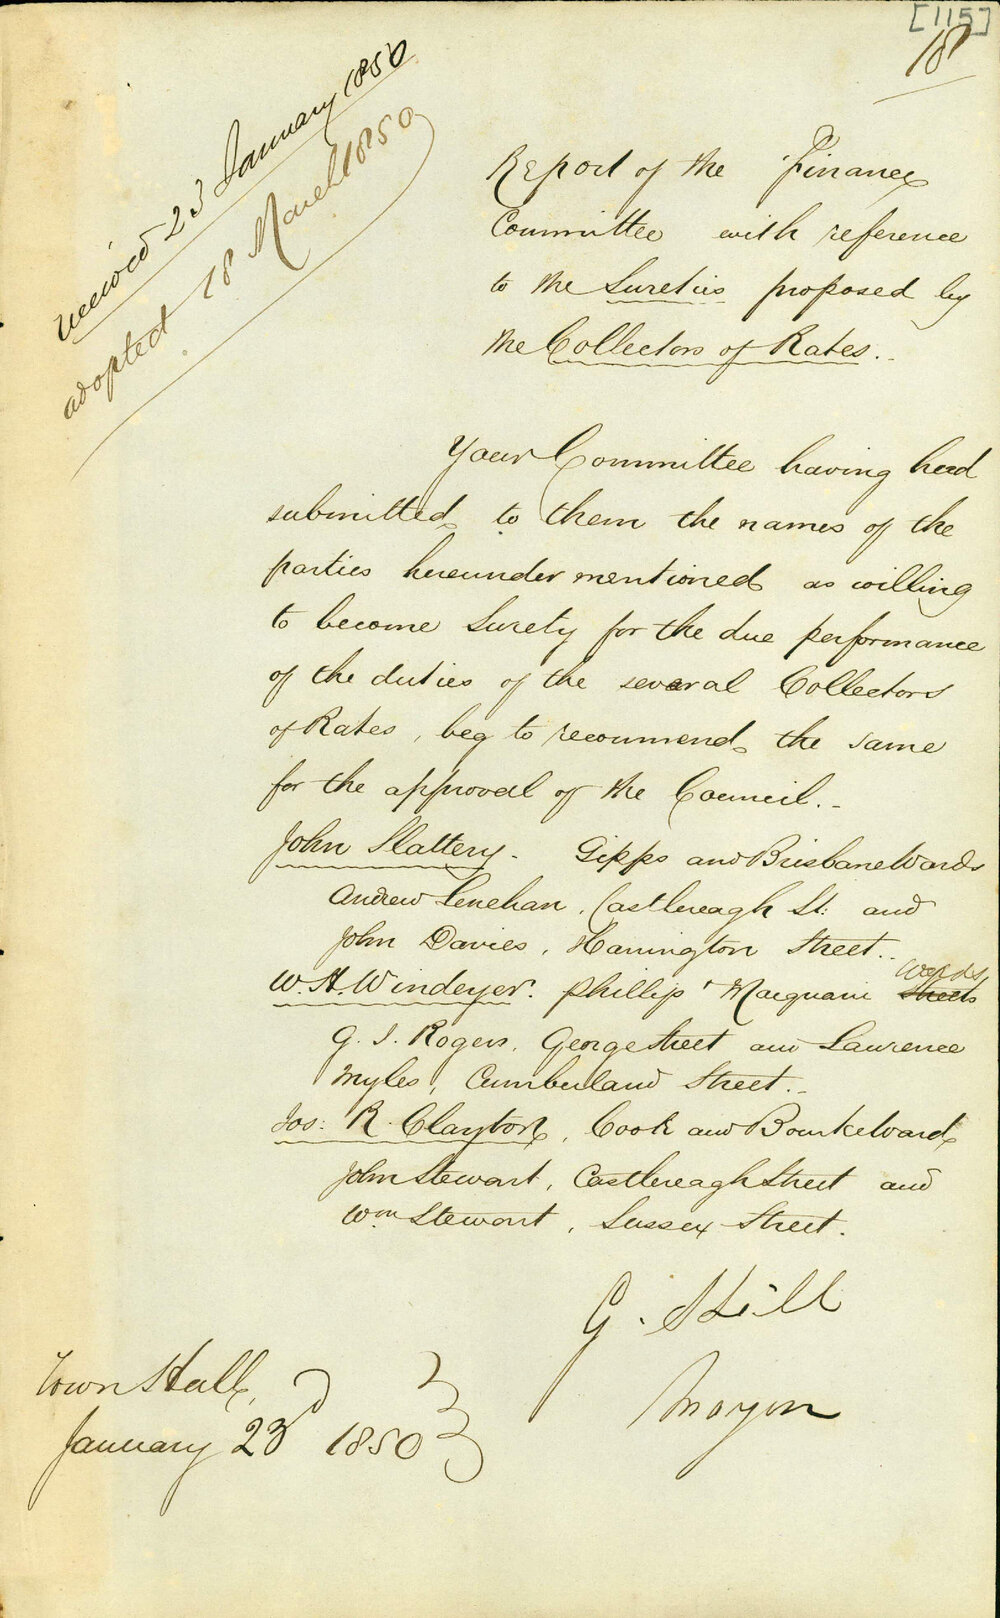 [115]
18
Received 23 January 1850
adopted 18 March 1850
Report of the Finance
Committee with reference
to the Sureties proposed by
the Collectors of Rates.
Your Committee having had
submitted to them the names of the
parties hereunder mentioned as willing
to become Surety for the due performance
of the duties of the several Collectors
of Rates, beg to recommend the same
for the approval of the Council.
John Slattery. Gipps and Brisbane Wards
Andrew Lenehan, Castlereagh St: and
John Davies, Harrington Street.
W. H. Windeyer. Phillip & Macquarie Streets Wards
G. J. Rogers, George Street and Laurence
Myles, Cumberland Street.
Jos: R. Clayton, Cook and Bourke Wards
John Stewart, Castlereagh Street and
Wm Stewart, Sussex Street.
G. Hill
Mayor
Town Hall,
January 23d 1850